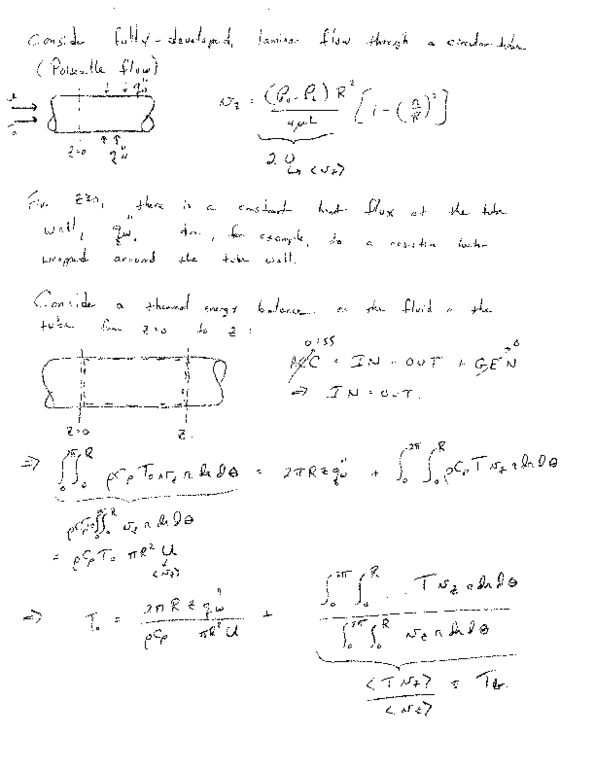 Consider fully-developed, laminar flow through a circular tube
(Poiseuille flow)
q_w"
v_z = (P_0 - P_L) R^2 / 4μL [1 - (r/R)^2]
z=0 q_w"
2 U
↳ <v_z>
For z>0, there is a constant heat flux at the tube
wall, q_w", due, for example, to a resistive heater
wrapped around the tube wall.
Consider a thermal energy balance on the fluid in the
tube from z=0 to z:
0:SS
ACC = IN - OUT + GEN → 0
⇒ IN = OUT.
z=0 z
⇒ ∫_0^2π ∫_0^R ρC_p T_0 v_z r dr dθ = 2πRz q_w" + ∫_0^2π ∫_0^R ρC_p T v_z r dr dθ
ρC_p T_0 ∫_0^2π ∫_0^R v_z r dr dθ
= ρC_p T_0 πR^2 U
<v_z>
⇒ T_0 = 2πRz q_w" / ρC_p πR^2 U + ∫_0^2π ∫_0^R T v_z r dr dθ / ∫_0^2π ∫_0^R v_z r dr dθ
<T v_z> / <v_z> ≡ T_b